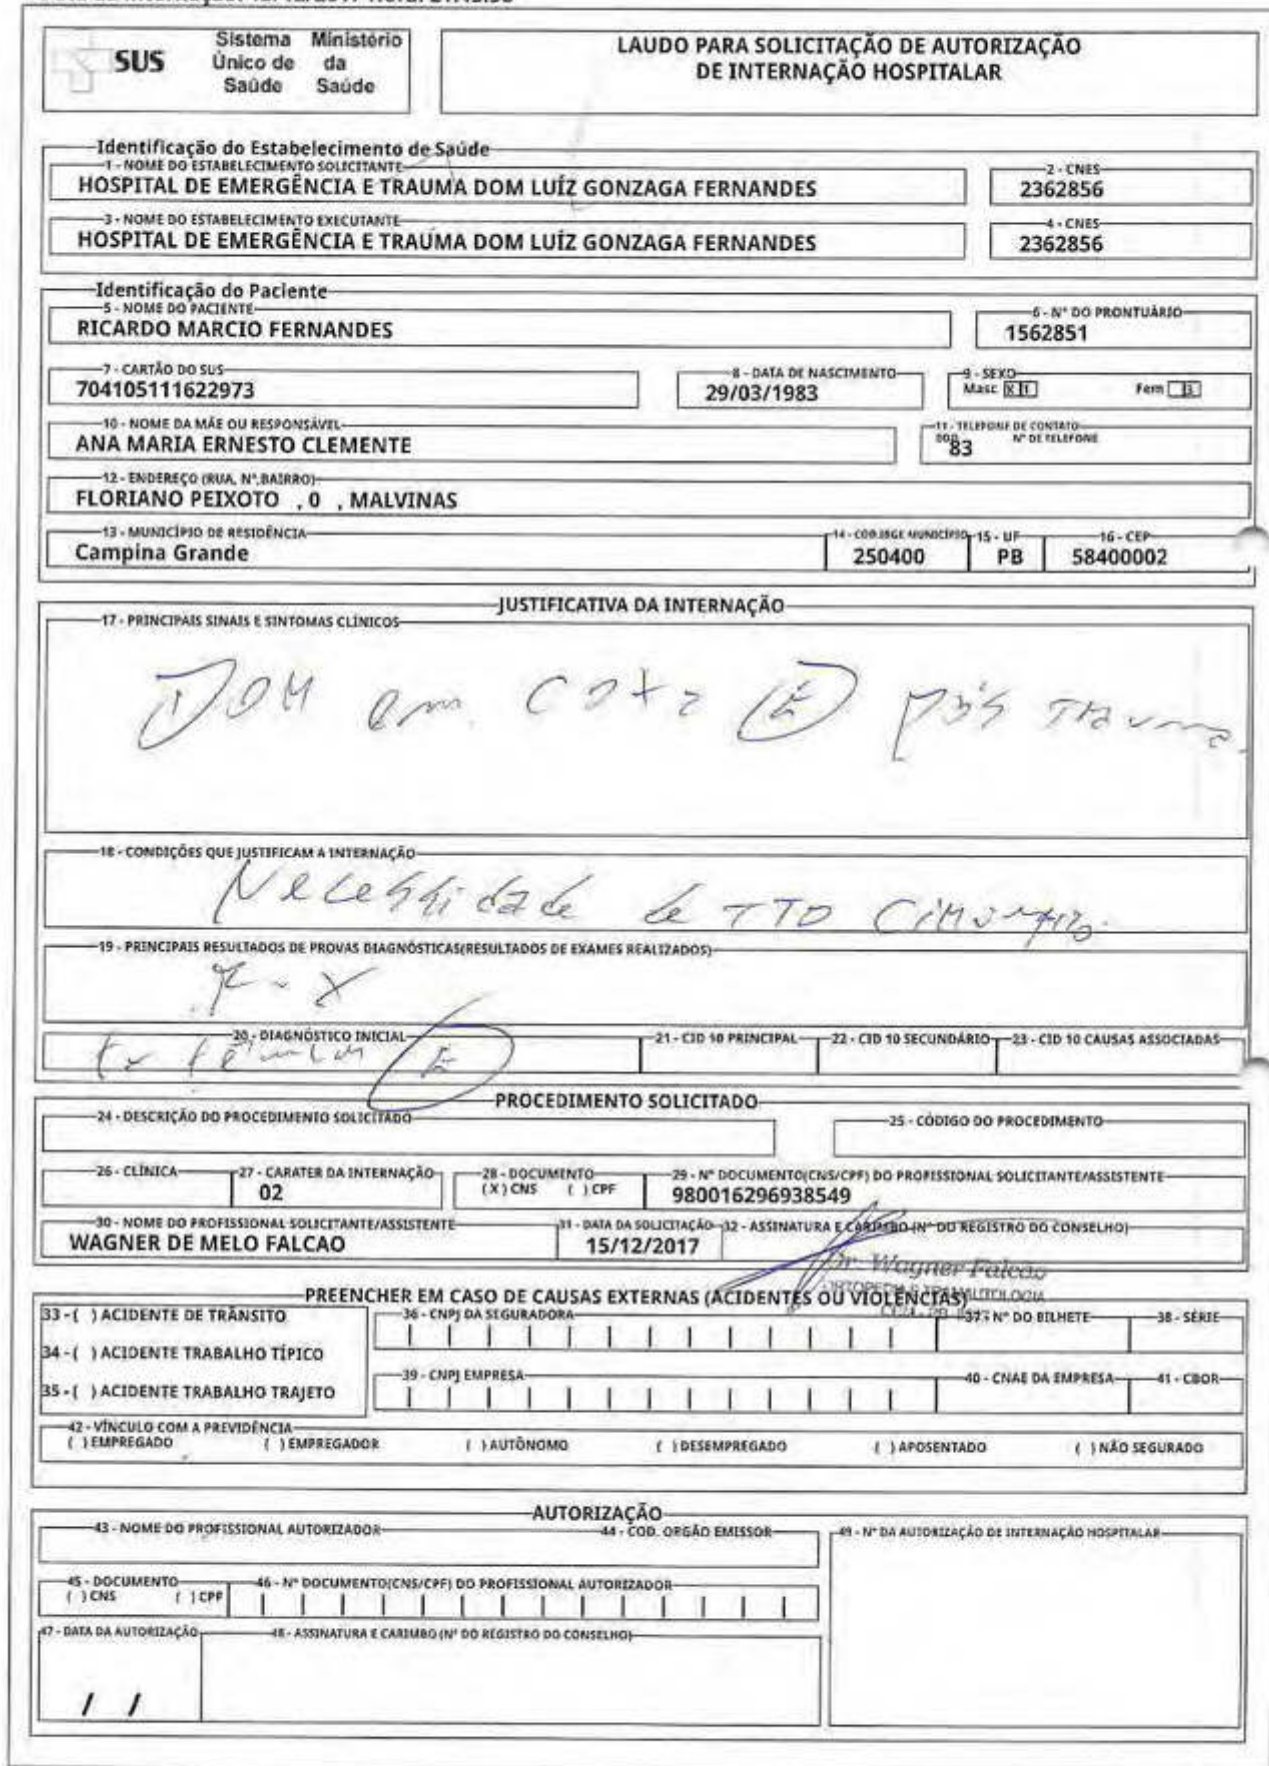 SUS
Sistema Único de Saúde
Ministério da Saúde
LAUDO PARA SOLICITAÇÃO DE AUTORIZAÇÃO
DE INTERNAÇÃO HOSPITALAR
Identificação do Estabelecimento de Saúde
1 - NOME DO ESTABELECIMENTO SOLICITANTE
2 - CNES
HOSPITAL DE EMERGÊNCIA E TRAUMA DOM LUÍZ GONZAGA FERNANDES
2362856
3 - NOME DO ESTABELECIMENTO EXECUTANTE
4 - CNES
HOSPITAL DE EMERGÊNCIA E TRAUMA DOM LUÍZ GONZAGA FERNANDES
2362856
Identificação do Paciente
5 - NOME DO PACIENTE
6 - N° DO PRONTUÁRIO
RICARDO MARCIO FERNANDES
1562851
7 - CARTÃO DO SUS
8 - DATA DE NASCIMENTO
9 - SEXO
704105111622973
29/03/1983
Masc X 1 Fem 3
10 - NOME DA MÃE OU RESPONSÁVEL
11 - TELEFONE DE CONTATO
DDD N° DE TELEFONE
ANA MARIA ERNESTO CLEMENTE
83
12 - ENDEREÇO (RUA, N°,BAIRRO)
FLORIANO PEIXOTO , 0 , MALVINAS
13 - MUNICÍPIO DE RESIDÊNCIA
14 - COD.IBGE MUNICÍPIO
15 - UF
16 - CEP
Campina Grande
250400
PB
58400002
JUSTIFICATIVA DA INTERNAÇÃO
17 - PRINCIPAIS SINAIS E SINTOMAS CLÍNICOS
Dor em coxa E pós trauma
18 - CONDIÇÕES QUE JUSTIFICAM A INTERNAÇÃO
Necessidade de TTO Cirúrgico
19 - PRINCIPAIS RESULTADOS DE PROVAS DIAGNÓSTICAS(RESULTADOS DE EXAMES REALIZADOS)
R-X
20 - DIAGNÓSTICO INICIAL
21 - CID 10 PRINCIPAL
22 - CID 10 SECUNDÁRIO
23 - CID 10 CAUSAS ASSOCIADAS
Fx E
PROCEDIMENTO SOLICITADO
24 - DESCRIÇÃO DO PROCEDIMENTO SOLICITADO
25 - CÓDIGO DO PROCEDIMENTO
26 - CLÍNICA
27 - CARATER DA INTERNAÇÃO
28 - DOCUMENTO
29 - N° DOCUMENTO(CNS/CPF) DO PROFISSIONAL SOLICITANTE/ASSISTENTE
02
(X) CNS ( ) CPF
980016296938549
30 - NOME DO PROFISSIONAL SOLICITANTE/ASSISTENTE
31 - DATA DA SOLICITAÇÃO
32 - ASSINATURA E CARIMBO (N° DO REGISTRO DO CONSELHO)
WAGNER DE MELO FALCAO
15/12/2017
Dr. Wagner Falcão
ORTOPEDIA E TRAUMATOLOGIA
PREENCHER EM CASO DE CAUSAS EXTERNAS (ACIDENTES OU VIOLÊNCIAS)
33 - ( ) ACIDENTE DE TRÂNSITO
36 - CNPJ DA SEGURADORA
37 - N° DO BILHETE
38 - SÉRIE
34 - ( ) ACIDENTE TRABALHO TÍPICO
35 - ( ) ACIDENTE TRABALHO TRAJETO
39 - CNPJ EMPRESA
40 - CNAE DA EMPRESA
41 - CBOR
42 - VÍNCULO COM A PREVIDÊNCIA
( ) EMPREGADO ( ) EMPREGADOR ( ) AUTÔNOMO ( ) DESEMPREGADO ( ) APOSENTADO ( ) NÃO SEGURADO
AUTORIZAÇÃO
43 - NOME DO PROFISSIONAL AUTORIZADOR
44 - COD. ORGÃO EMISSOR
49 - N° DA AUTORIZAÇÃO DE INTERNAÇÃO HOSPITALAR
45 - DOCUMENTO
46 - N° DOCUMENTO(CNS/CPF) DO PROFISSIONAL AUTORIZADOR
( ) CNS ( ) CPF
47 - DATA DA AUTORIZAÇÃO
48 - ASSINATURA E CARIMBO (N° DO REGISTRO DO CONSELHO)
/ /